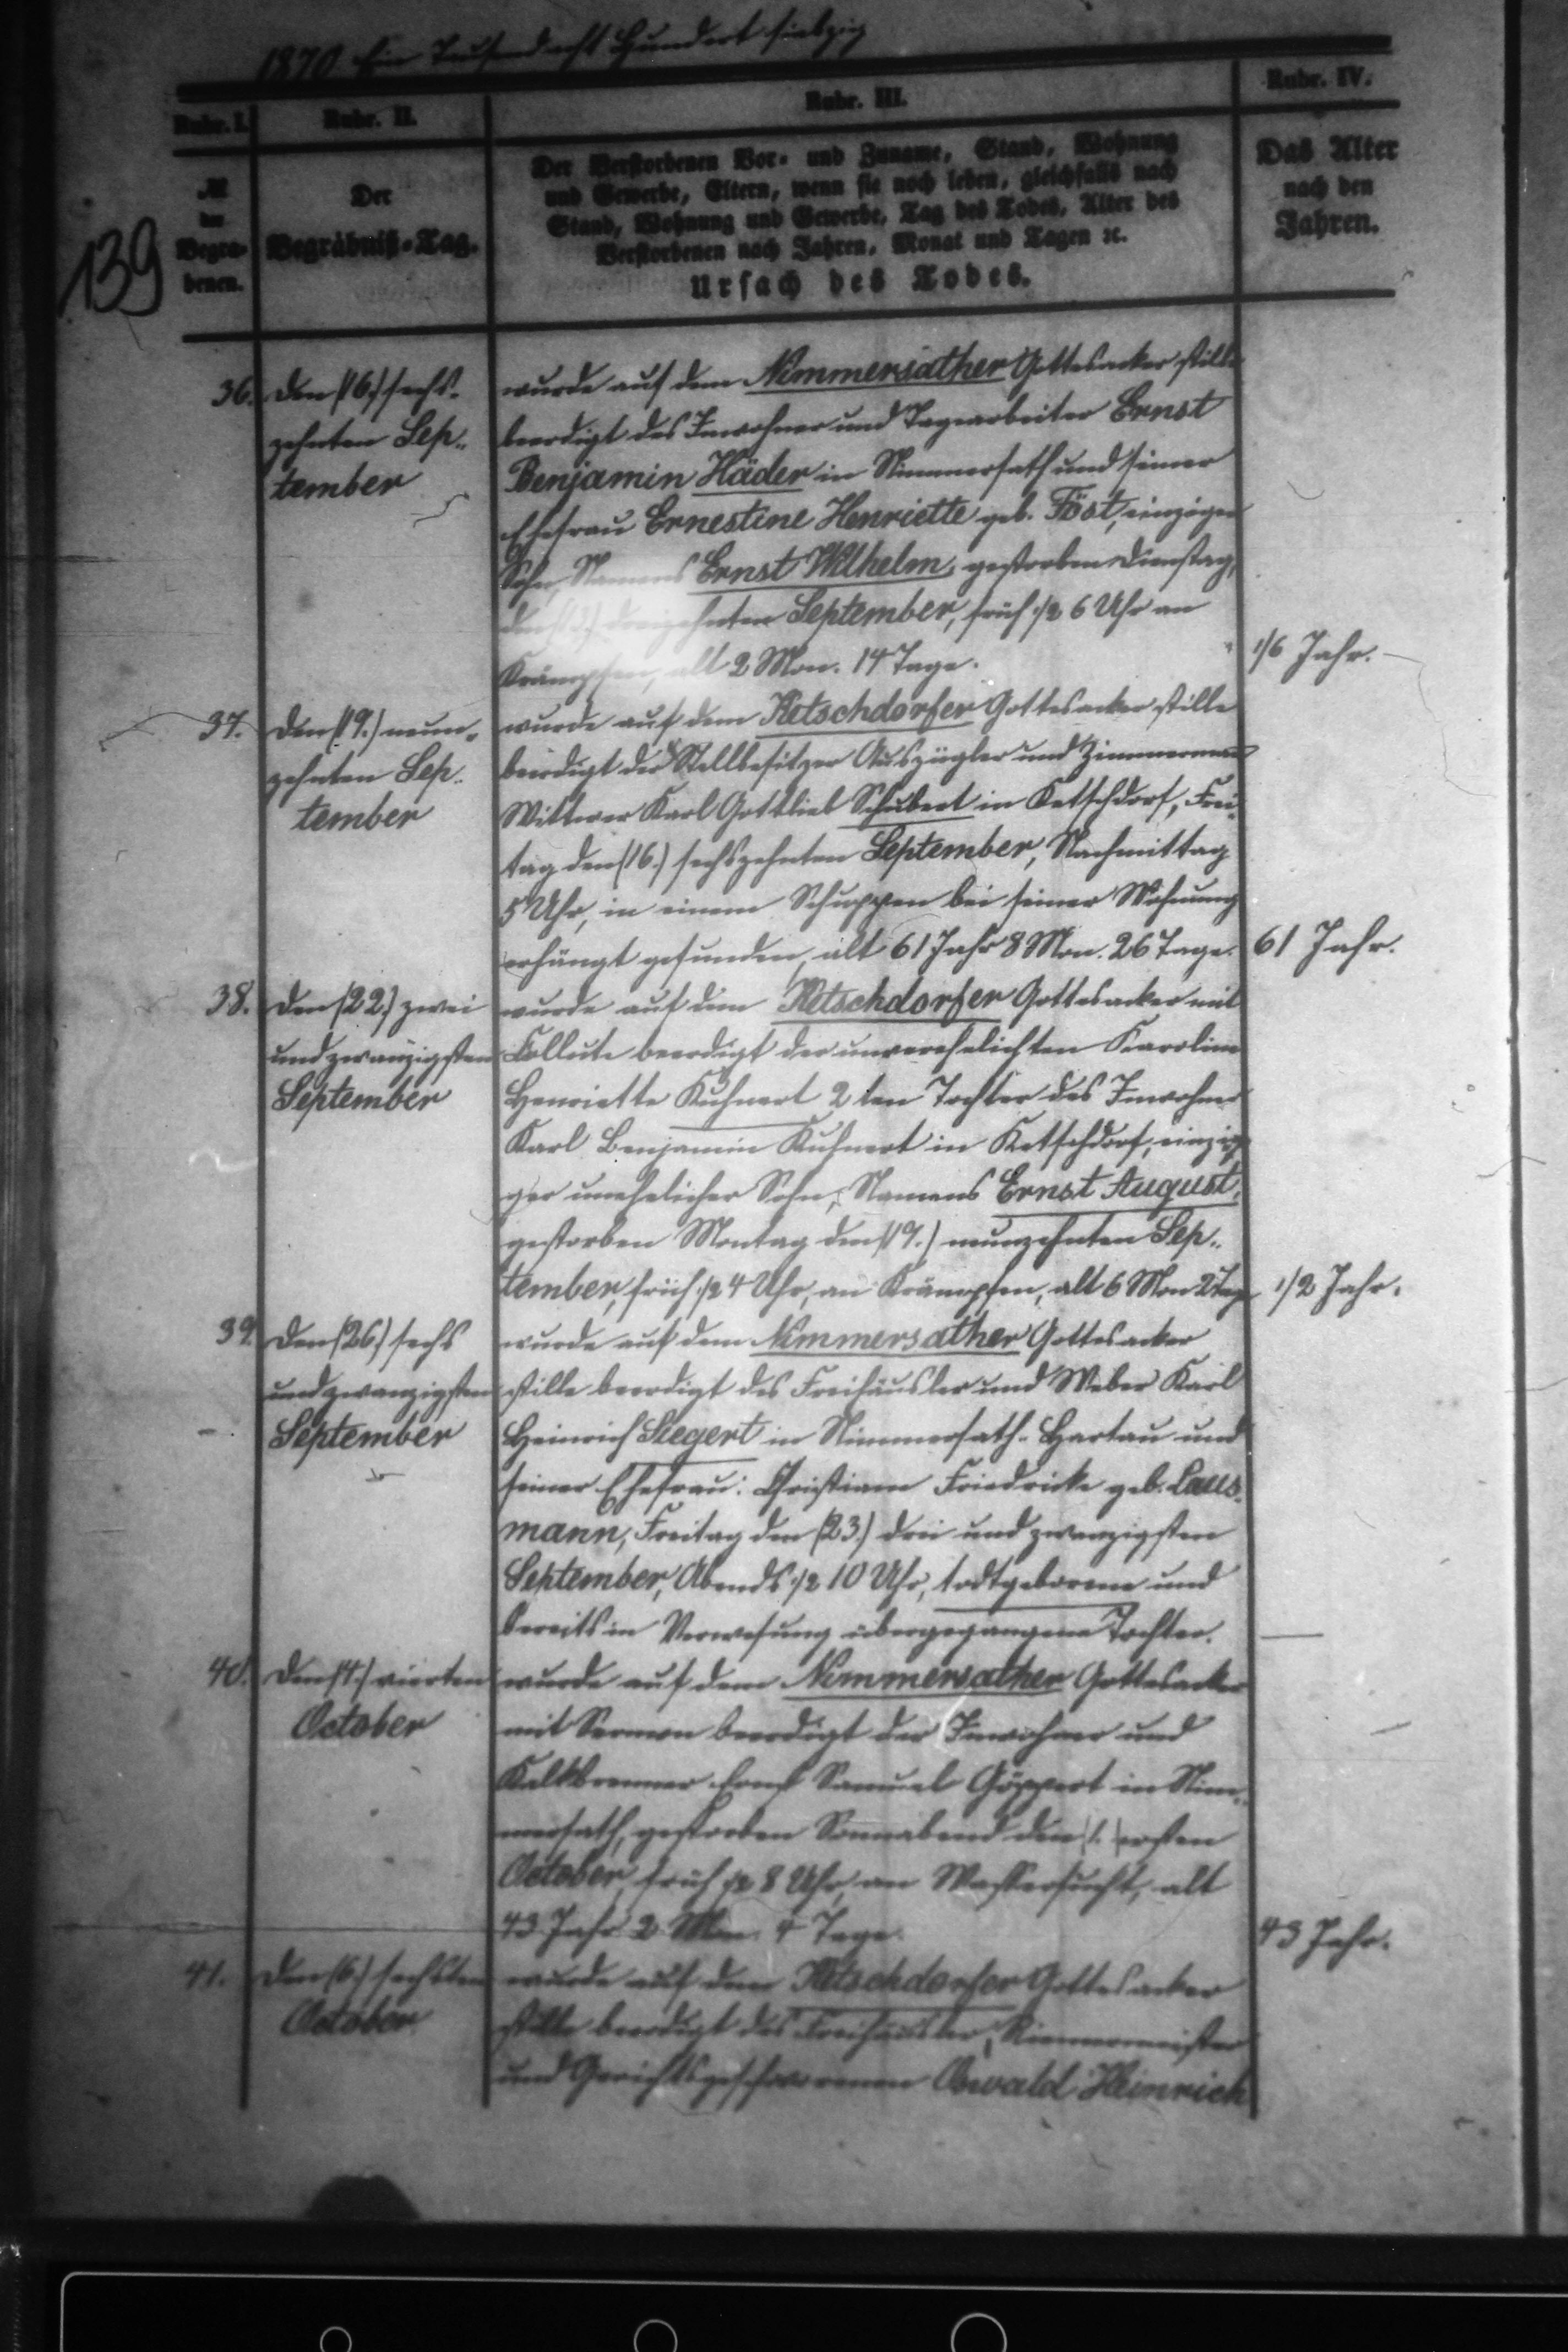 1870 Ein Tausend acht Hundert siebzig
Rubr. I. Rubr. II. Rubr. III. Rubr. IV.
№ der Begrabenen.
Der Begräbniß-Tag.
Der Verstorbenen Vor- und Zuname, Stand, Wohnung
und Gewerbe, Eltern, wenn sie noch leben, gleichfalls nach
Stand, Wohnung und Gewerbe, Tag des Todes, Alter des
Verstorbenen nach Jahren, Monat und Tagen ꝛc.
Ursach des Todes.
Das Alter
nach den
Jahren.
139
36. den (16.) sechs-
zehnten Sep-
tember
wurde auf dem Nimmersather Gottesacker stille
beerdigt des Inwohner und Tagearbeiter Ernst
Benjamin Häder in Nimmersath und seiner
Ehefrau Ernestine Henriette geb. Föst, einziger
Sohn, Namens Ernst Wilhelm, gestorben Dienstag,
den (13.) dreizehnten September, früh ½ 6 Uhr an
Krämpfen, alt 2 Mon. 14 Tage.
1/6 Jahr.
37. den (19.) neun-
zehnten Sep-
tember
wurde auf dem Ketschdorfer Gottesacker stille
beerdigt der Stellbesitzer Auszügler und Zimmermann
Wittwer Karl Gottlieb Schubert in Ketschdorf, Frei-
tag den (16.) sechszehnten September, Nachmittag
5 Uhr, in einem Schuppen bei seiner Wohnung
erhängt gefunden, alt 61 Jahr 8 Mon. 26 Tage.
61 Jahr.
38. den (22.) zwei
und zwanzigsten
September
wurde auf dem Ketschdorfer Gottesacker mit
Collecte beerdigt der unverehelichten Karoline
Henriette Kuhnert 2ten Tochter des Inwohner
Karl Benjamin Kuhnert in Ketschdorf, einzi-
ger unehelicher Sohn, Namens Ernst August,
gestorben Montag den (19.) neunzehnten Sep-
tember, früh ½ 4 Uhr, an Krämpfen, alt 6 Mon 2 Tage
1/2 Jahr.
39. den (26.) sechs
und zwanzigsten
September
wurde auf dem Nimmersather Gottesacker
stille beerdigt des Freihäusler und Weber Karl
Heinrich Siegert in Nimmersath-Hartau und
seiner Ehefrau: Christiane Friedricke geb. Laus-
mann, Freitag den (23.) drei und zwanzigsten
September, Abends ½ 10 Uhr, todtgeborene und
bereits in Verwesung übergegangene Tochter.
—
40. den (4.) vierten
October
wurde auf dem Nimmersather Gottesacker
mit Sermon beerdigt der Inwohner und
Kalkbrenner Ernst Samuel Göppert in Nim-
mersath, gestorben Sonnabend den (1.) ersten
October, früh ½ 8 Uhr, an Wassersucht, alt
43 Jahr 2 Mon. 4 Tage.
43 Jahr.
41. den (6.) sechsten
October
wurde auf dem Ketschdorfer Gottesacker
stille beerdigt des Freihäusler, Riemermeister
und Gerichtsgeschworenen Oswald Heinrich